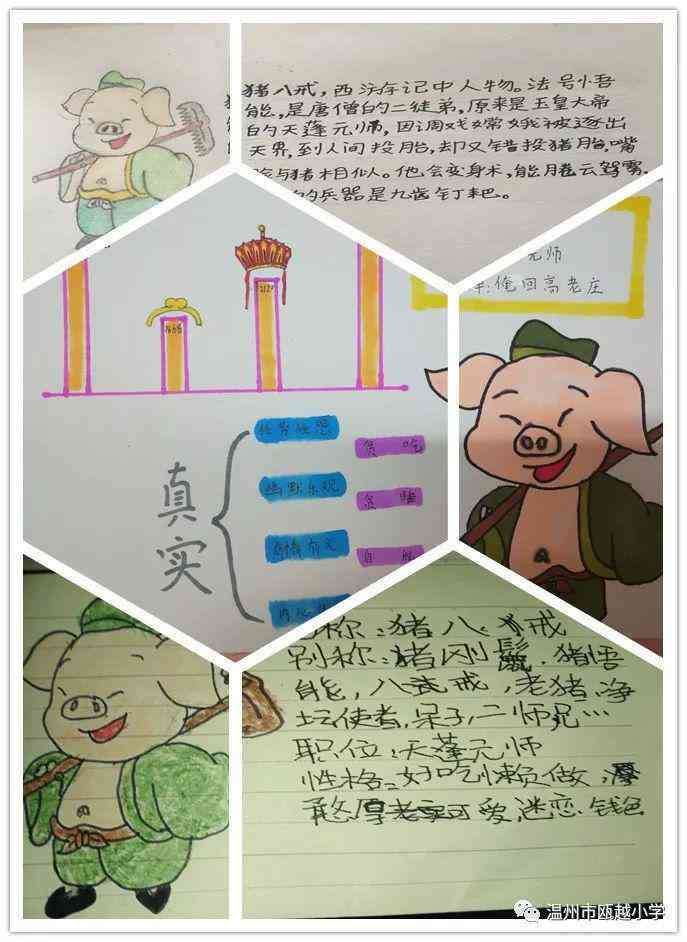 猪八戒，西游记中人物。法号悟
能，是唐僧的二徒弟，原来是玉皇大帝
的天蓬元帅，因调戏嫦娥被逐出
天界，到人间投胎，却又错投猪胎，嘴
与猪相似。他会变身术，能腾云驾雾，
的兵器是九齿钉耙。
元师
：俺回高老庄
真实
任劳任怨
贪吃
幽默乐观
贪睡
有情有义
自私
称：猪八戒
别称：猪刚鬣，猪悟
能，八戒，老猪，净
坛使者，呆子，二师兄…
职位：天蓬元师
性格：好吃懒做，
憨厚老实可爱，迷恋 钱色
温州市瓯越小学